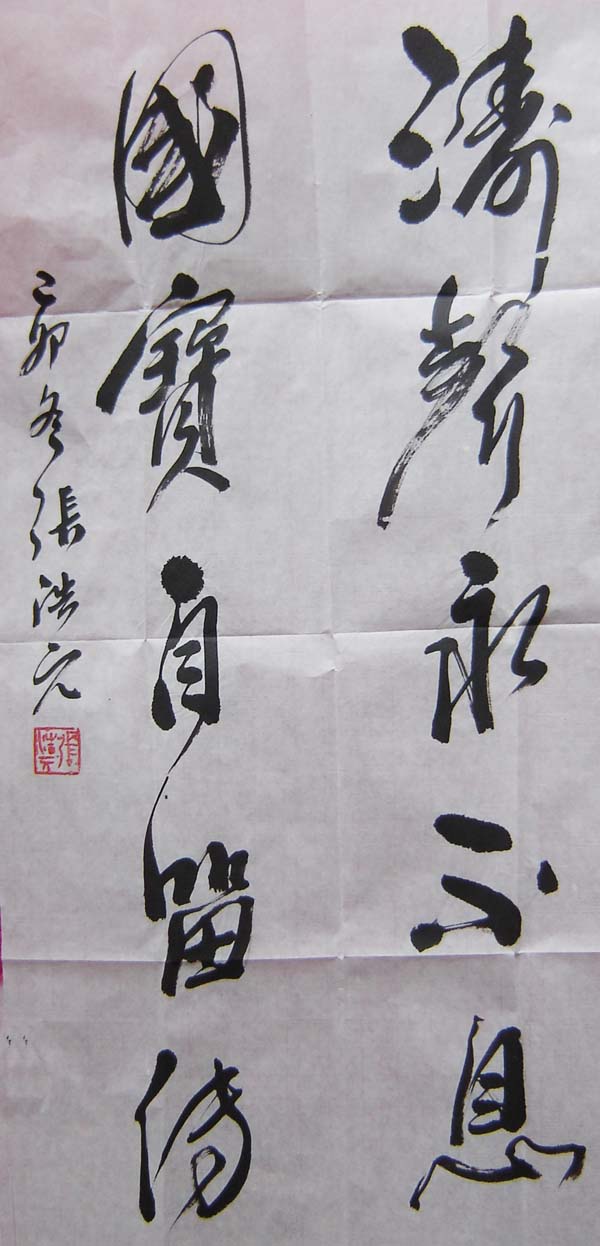 濤聲永不息
國寶自留傳
己卯冬張浩元
張浩元